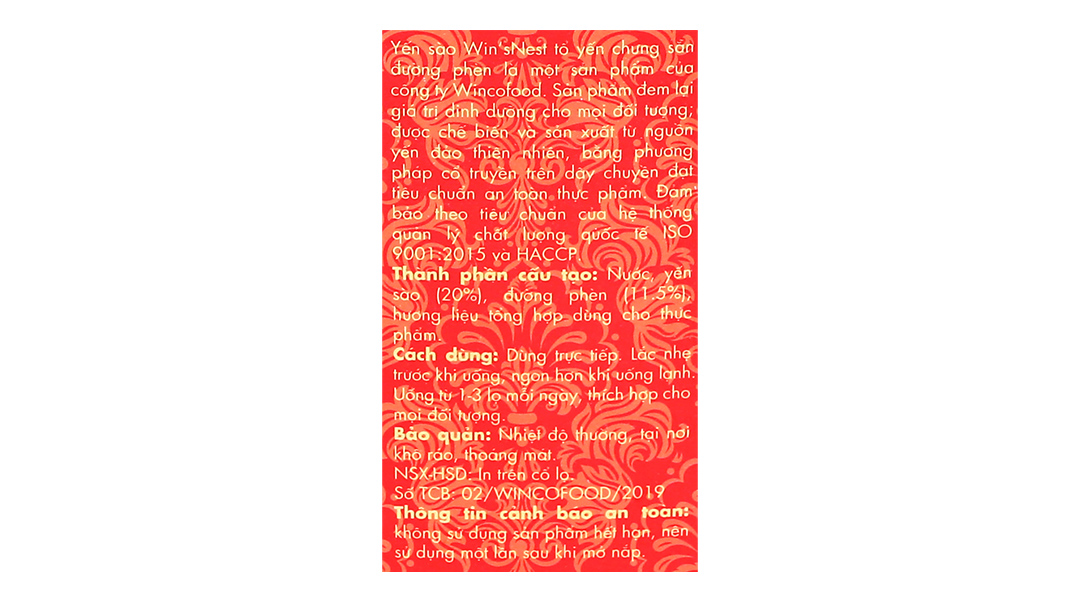 Yến sào Win'sNest tổ yến chưng sẵn
đường phèn là một sản phẩm của
công ty Wincofood. Sản phẩm đem lại
giá trị dinh dưỡng cho mọi đối tượng;
được chế biến và sản xuất từ nguồn
yến đảo thiên nhiên, bằng phương
pháp cổ truyền trên dây chuyền đạt
tiêu chuẩn an toàn thực phẩm. Đảm
bảo theo tiêu chuẩn của hệ thống
quản lý chất lượng quốc tế ISO
9001:2015 và HACCP.
Thành phần cấu tạo: Nước, yến
sào (20%), đường phèn (11.5%),
hương liệu tổng hợp dùng cho thực
phẩm.
Cách dùng: Dùng trực tiếp. Lắc nhẹ
trước khi uống, ngon hơn khi uống lạnh.
Uống từ 1-3 lọ mỗi ngày, thích hợp cho
mọi đối tượng.
Bảo quản: Nhiệt độ thường, tại nơi
khô ráo, thoáng mát.
NSX-HSD: In trên cổ lọ.
Số TCB: 02/WINCOFOOD/2019
Thông tin cảnh báo an toàn:
không sử dụng sản phẩm hết hạn, nên
sử dụng một lần sau khi mở nắp.